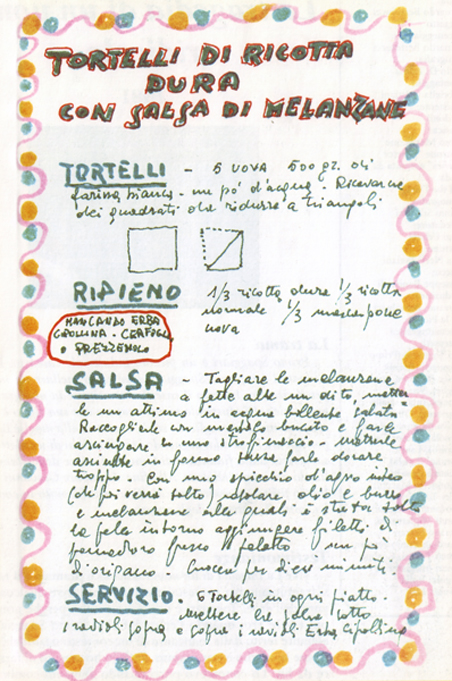 TORTELLI DI RICOTTA
DURA
CON SALSA DI MELANZANE
TORTELLI - 5 UOVA 500 gr. di
farina bianca - un po' d'acqua - Ricavarne
dei quadrati da ridurre a triangoli
RIPIENO 1/3 ricotta dura 1/3 ricotta
normale 1/3 mascarpone
uova
MANCANDO ERBA
CIPOLLINA - CERFOGLIO
O PREZZEMOLO
SALSA - Tagliare le melanzane
a fette alte un dito, metter
le un attimo in acqua bollente salata
Raccoglierle con mestolo bucato e farle
asciugare in uno strofinaccio - metterle
asciutte in forno senza farle dorare
troppo. Con uno spicchio d'aglio intero
(che poi verrà tolto) rosolare olio e burro
e melanzane alle quali è stata tolta
la pelle intorno aggiungere filetti di
pomodoro fresco pelato un po'
d'origano. Cuocere per dieci minuti.
SERVIZIO. 6 Tortelli in ogni piatto.
Mettere la salsa sotto
i ravioli sopra e sopra i ravioli Erba Cipollina